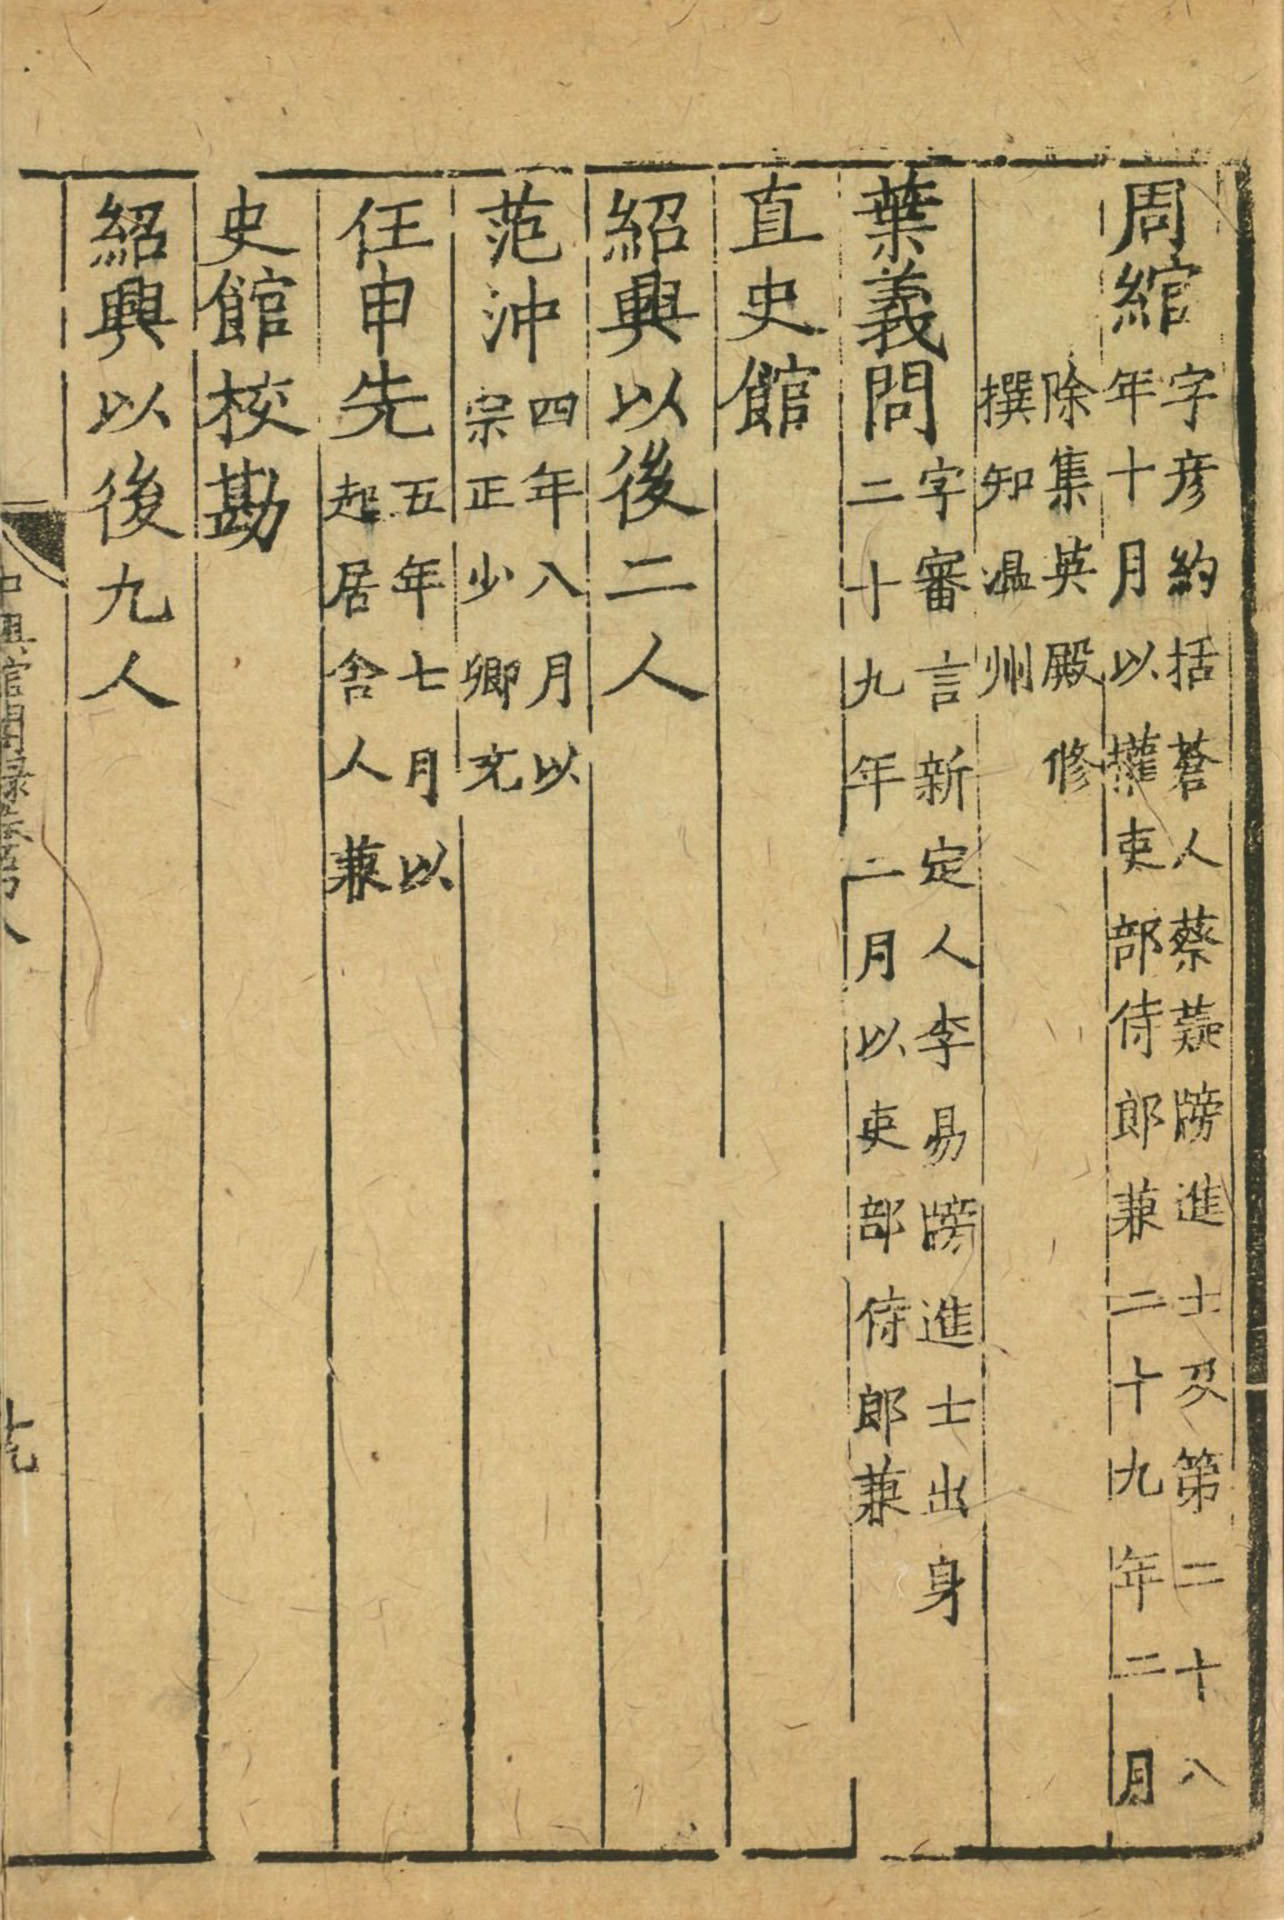 周綰字彦約括蒼人蔡薿牓進士及第二十八
年十月以權吏部侍郎兼二十九年二月
除集英殿修
撰知温州
葉義問字審言新定人李易牓進士出身
二十九年二月以吏部侍郎兼
直史館
紹興以後二人
范沖四年八月以
宗正少卿充
任申先五年七月以
起居舍人兼
史館校勘
紹興以後九人
中興館閣録卷第八
十九